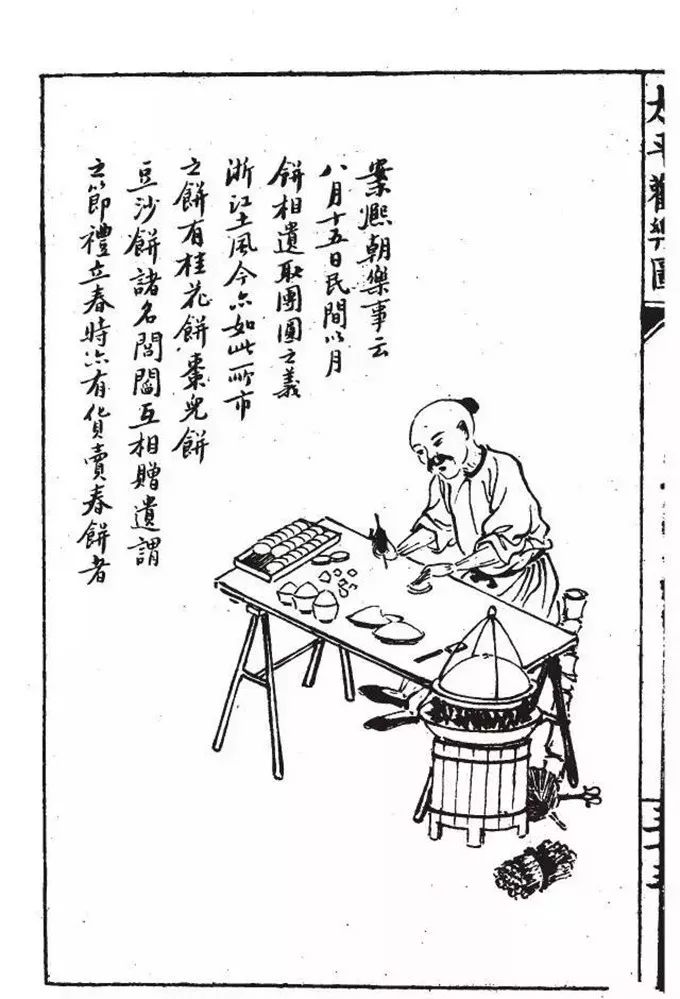 案熈朝樂事云
八月十五日民間以月
餅相遺取團圓之義
浙江土風今亦如此所市
之餅有桂花餅棗兒餅
豆沙餅諸名閭閻互相贈遺謂
之節禮立春時亦有貨賣春餅者
太平歡樂圖